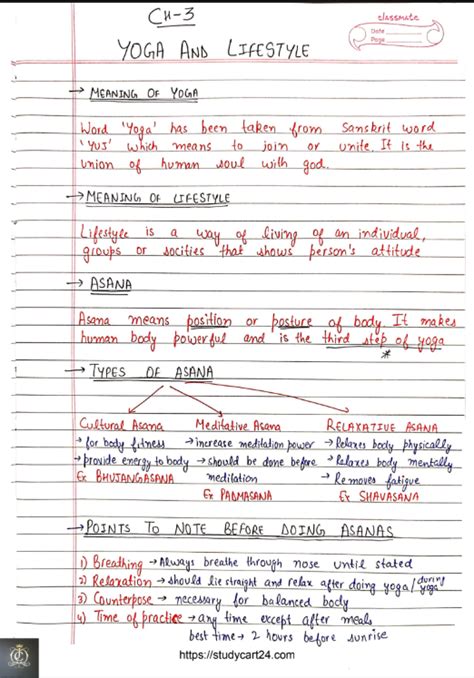 CH-3
classmate
Date
Page
YOGA AND LIFESTYLE
→ MEANING OF YOGA
Word 'Yoga' has been taken from Sanskrit word
'YUJ' which means to join or unite. It is the
union of human soul with god.
→ MEANING OF LIFESTYLE
Lifestyle is a way of living of an individual,
groups or socities that shows person's attitude
→ ASANA
Asana means position or posture of body. It makes
human body powerful and is the third step of yoga
*
→ TYPES OF ASANA
Cultural Asana Meditative Asana RELAXATIVE ASANA
→ for body fitness → increase meditation power → Relaxes body physically
→ provide energy to body → should be done before → Relaxes body mentally
Ex BHUJANGASANA meditation → Removes fatigue
Ex PADMASANA Ex SHAVASANA
→ POINTS TO NOTE BEFORE DOING ASANAS
1) Breathing → Always breathe through nose until stated
2) Relaxation → should lie straight and relax after doing yoga/during yoga
3) Counterpose → necessary for balanced body
4) Time of practice → any time except after meals
best time → 2 hours before sunrise
https://studycart24.com